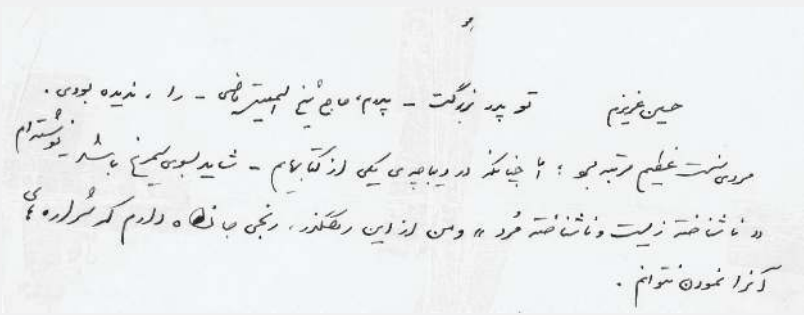 حسین عزیزم تو پدر بزرگت - پدرم، حاج شیخ - را، ندیده بودی.
مردی سخت عظیم مرتبه بود؛ امّا چنانکه در دیباچه‌ی یکی از کتابهایم - شاید بسوی سیمرغ باشد - نوشته‌ام
«ناشناخته زیست و ناشناخته مُرد» و من از این رهگذر، رنجی جانکاه دارم که شراره‌ای
آنرا نمودن نتوانم.